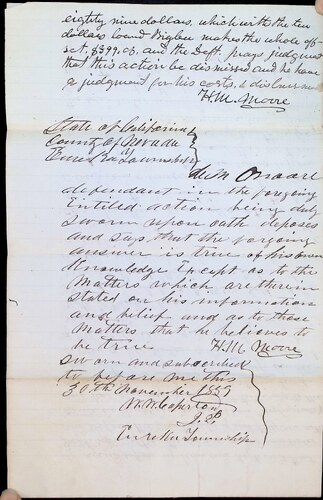 eighty nine dollars. which with the ten
dollars loand Bigbee makes the whole off
set. $399.03. and the Deft. prays judgment
that this action be dismissed and he have
a judgment for his costs. & disbursm
H. M. Moore
State of California
County of Nevada
Eureka Township
H M Moore
defendant in the forgoing
Entitled action being duly
sworn upon oath deposes
and says that the forgoing
answer is true of his own
Knowledge Except as to the
Matters which are therein
stated on his information
and belief and as to those
Matters that he believes to
be true H. M. Moore
sworn and subscribed
to before me this
30th November 1857
J. P.
Eureka Township